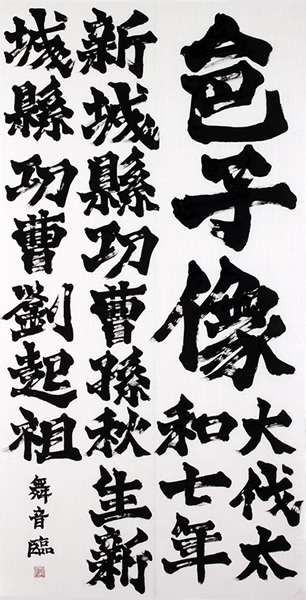 邑子像
大伐太
和七年
新城縣功曹孫秋生新
城縣功曹劉起祖
舞音臨